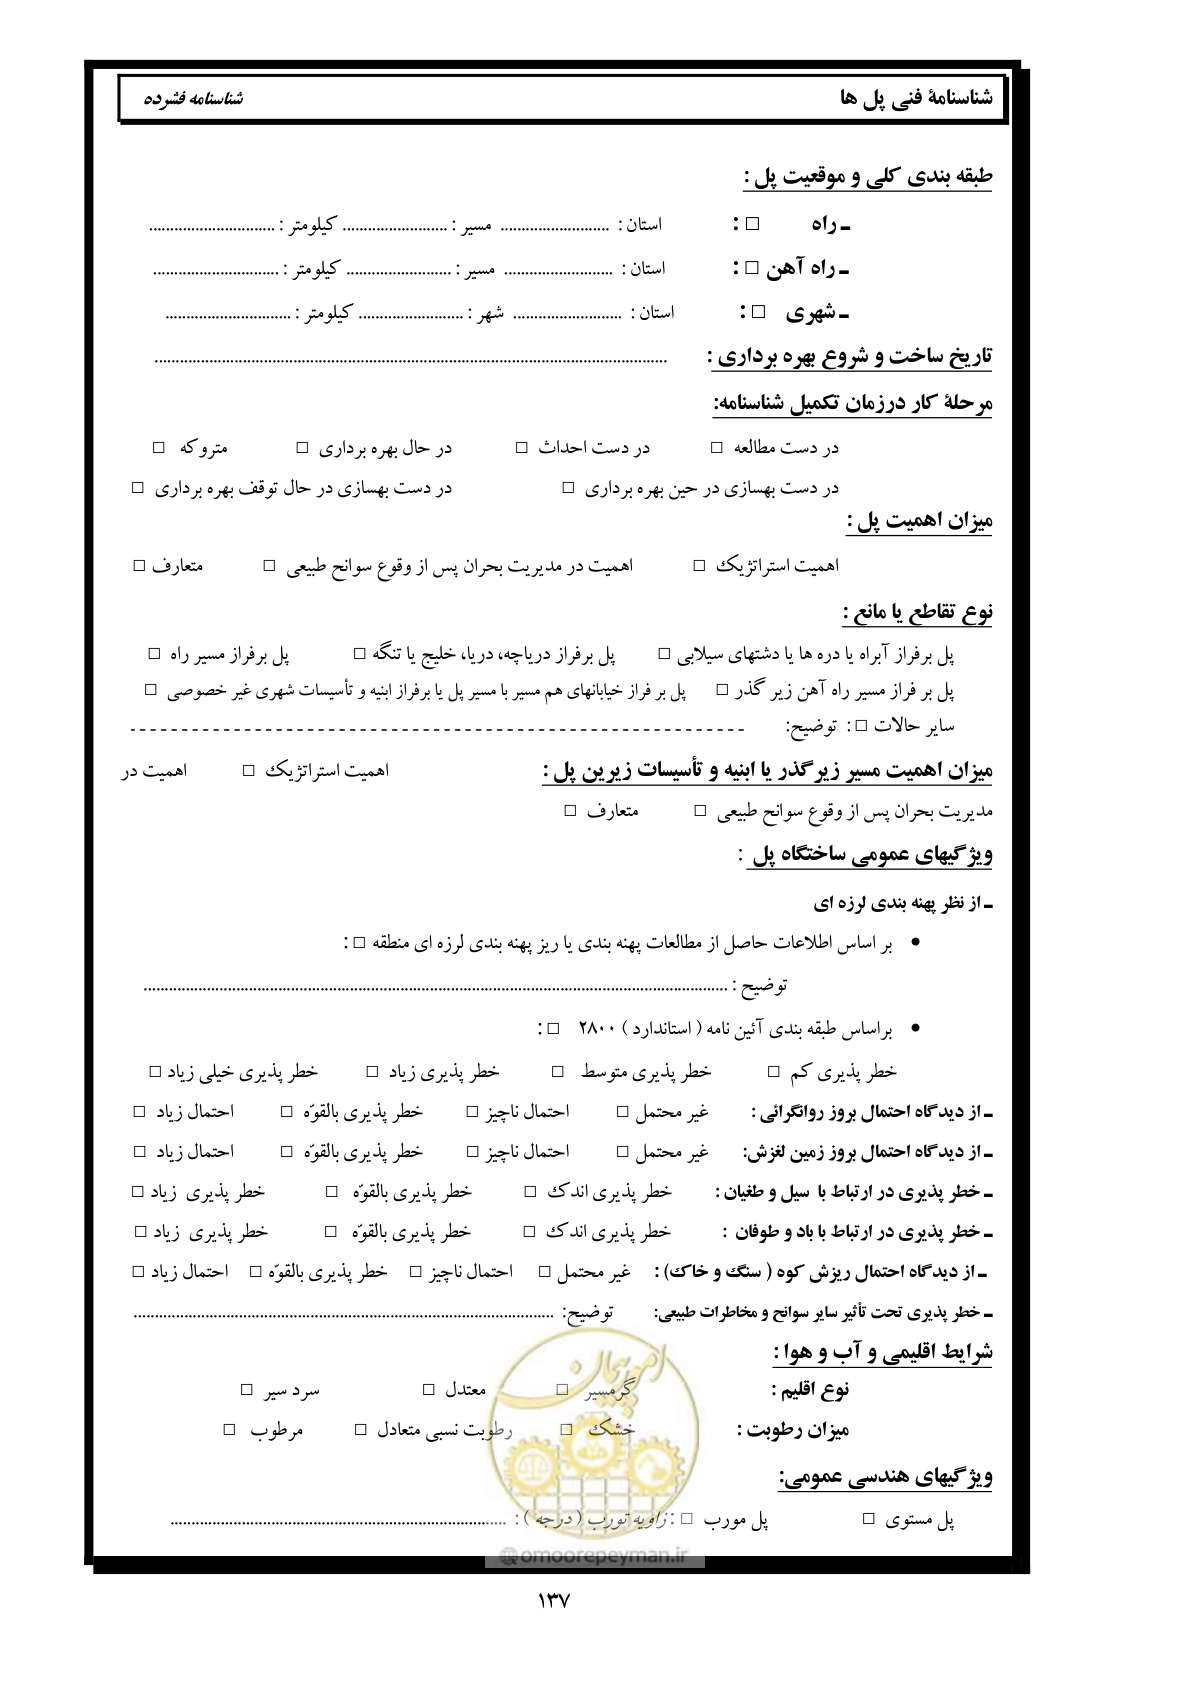 شناسنامهٔ فنی پل ها شناسنامه فشرده
طبقه بندی کلی و موقعیت پل :
ـ راه □ : استان : .......................... مسیر : ......................... کیلومتر : ..............................
ـ راه آهن □ : استان : .......................... مسیر : ......................... کیلومتر : ..............................
ـ شهری □ : استان : .......................... شهر : ......................... کیلومتر : ..............................
تاریخ ساخت و شروع بهره برداری : ..........................................................................................
مرحلهٔ کار درزمان تکمیل شناسنامه:
در دست مطالعه □ در دست احداث □ در حال بهره برداری □ متروکه □
در دست بهسازی در حین بهره برداری □ در دست بهسازی در حال توقف بهره برداری □
میزان اهمیت پل :
اهمیت استراتژیک □ اهمیت در مدیریت بحران پس از وقوع سوانح طبیعی □ متعارف □
نوع تقاطع یا مانع :
پل برفراز آبراه یا دره ها یا دشتهای سیلابی □ پل برفراز دریاچه، دریا، خلیج یا تنگه □ پل برفراز مسیر راه □
پل بر فراز مسیر راه آهن زیر گذر □ پل بر فراز خیابانهای هم مسیر با مسیر پل یا برفراز ابنیه و تأسیسات شهری غیر خصوصی □
سایر حالات □ : توضیح: - - - - - - - - - - - - - - - - - - - - - - - - - - - - - - - - - - - - - - - -
میزان اهمیت مسیر زیرگذر یا ابنیه و تأسیسات زیرین پل : اهمیت استراتژیک □ اهمیت در
مدیریت بحران پس از وقوع سوانح طبیعی □ متعارف □
ویژگیهای عمومی ساختگاه پل :
ـ از نظر پهنه بندی لرزه ای
• بر اساس اطلاعات حاصل از مطالعات پهنه بندی یا ریز پهنه بندی لرزه ای منطقه □ :
توضیح : ..........................................................................................
• براساس طبقه بندی آئین نامه ( استاندارد ) ۲۸۰۰ □ :
خطر پذیری کم □ خطر پذیری متوسط □ خطر پذیری زیاد □ خطر پذیری خیلی زیاد □
ـ از دیدگاه احتمال بروز روانگرائی : غیر محتمل □ احتمال ناچیز □ خطر پذیری بالقوّه □ احتمال زیاد □
ـ از دیدگاه احتمال بروز زمین لغزش: غیر محتمل □ احتمال ناچیز □ خطر پذیری بالقوّه □ احتمال زیاد □
ـ خطر پذیری در ارتباط با سیل و طغیان : خطر پذیری اندک □ خطر پذیری بالقوّه □ خطر پذیری زیاد □
ـ خطر پذیری در ارتباط با باد و طوفان : خطر پذیری اندک □ خطر پذیری بالقوّه □ خطر پذیری زیاد □
ـ از دیدگاه احتمال ریزش کوه ( سنگ و خاک) : غیر محتمل □ احتمال ناچیز □ خطر پذیری بالقوّه □ احتمال زیاد □
ـ خطر پذیری تحت تأثیر سایر سوانح و مخاطرات طبیعی: توضیح: ..........................................................................................
شرایط اقلیمی و آب و هوا :
نوع اقلیم : گرمسیر □ معتدل □ سرد سیر □
میزان رطوبت : خشک □ رطوبت نسبی متعادل □ مرطوب □
ویژگیهای هندسی عمومی:
پل مستوی □ پل مورب □ : زاویه تورب ( درجه ) : ..........................................................................
امور پیمان
@omoorepeyman.ir
۱۳۷